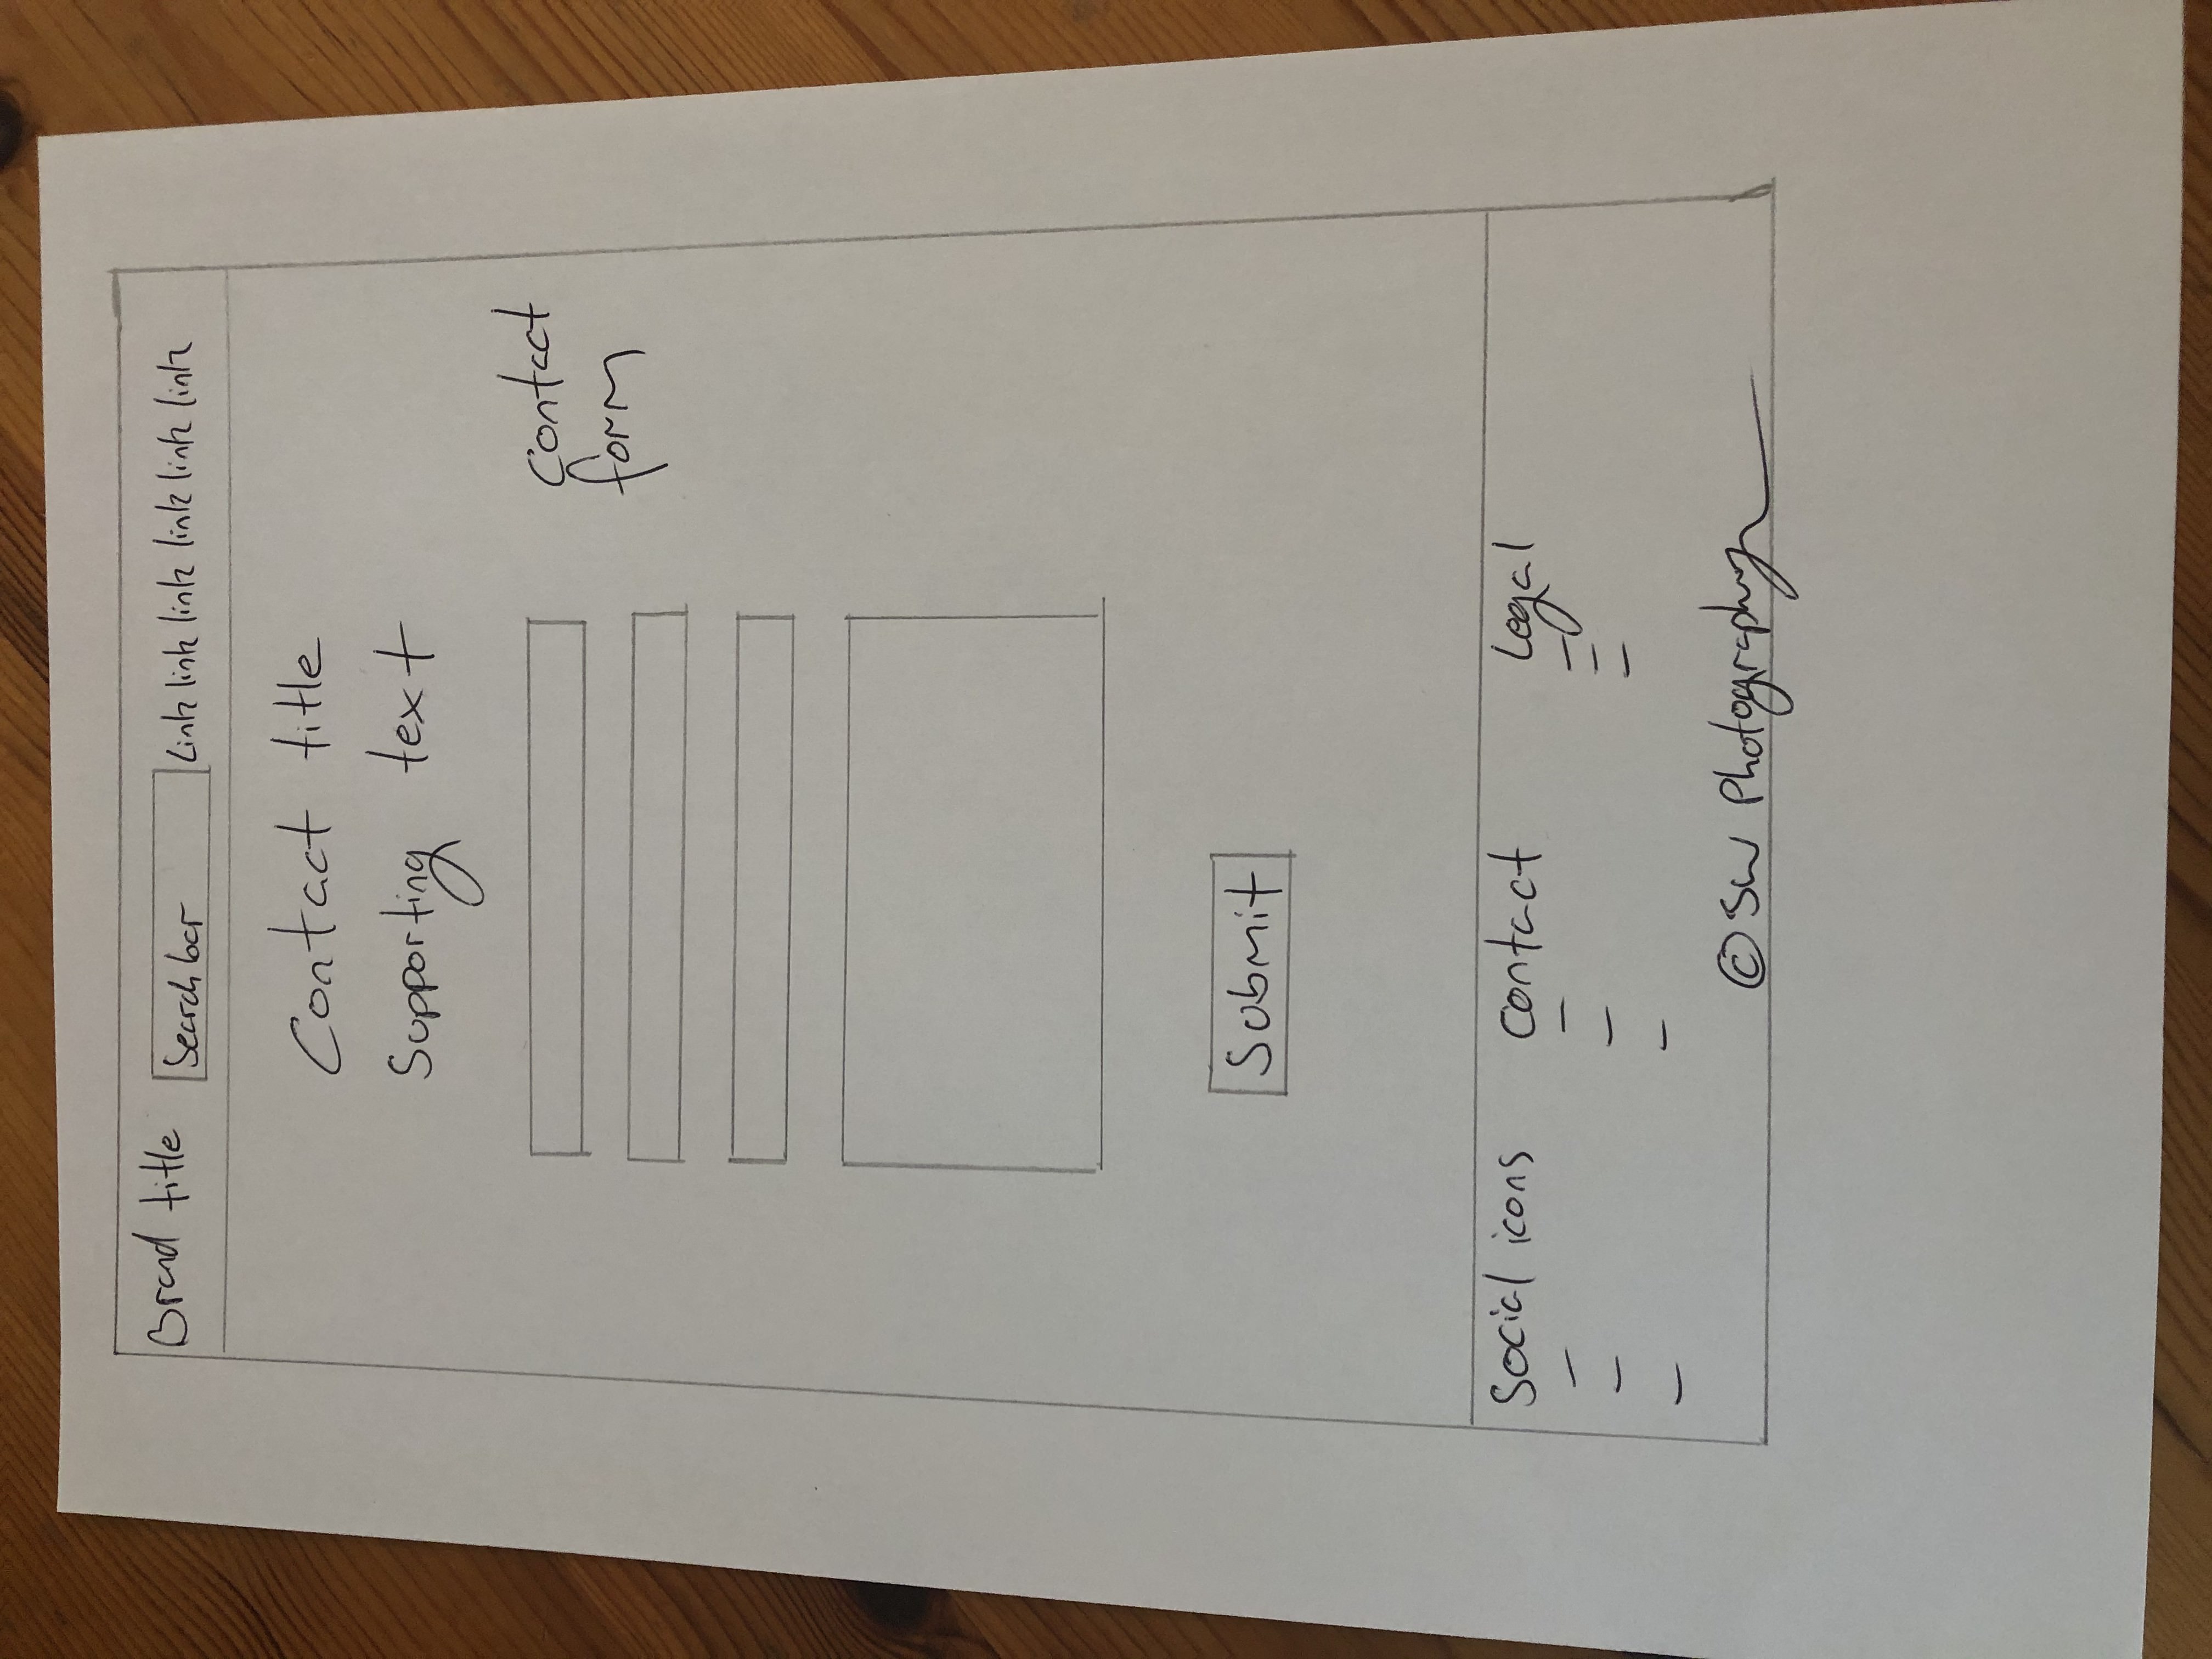 Brand title Search bar Link link link link link link
Contact title
Supporting text
Contact
form
Submit
Social icons Contact Legal
© SW Photography